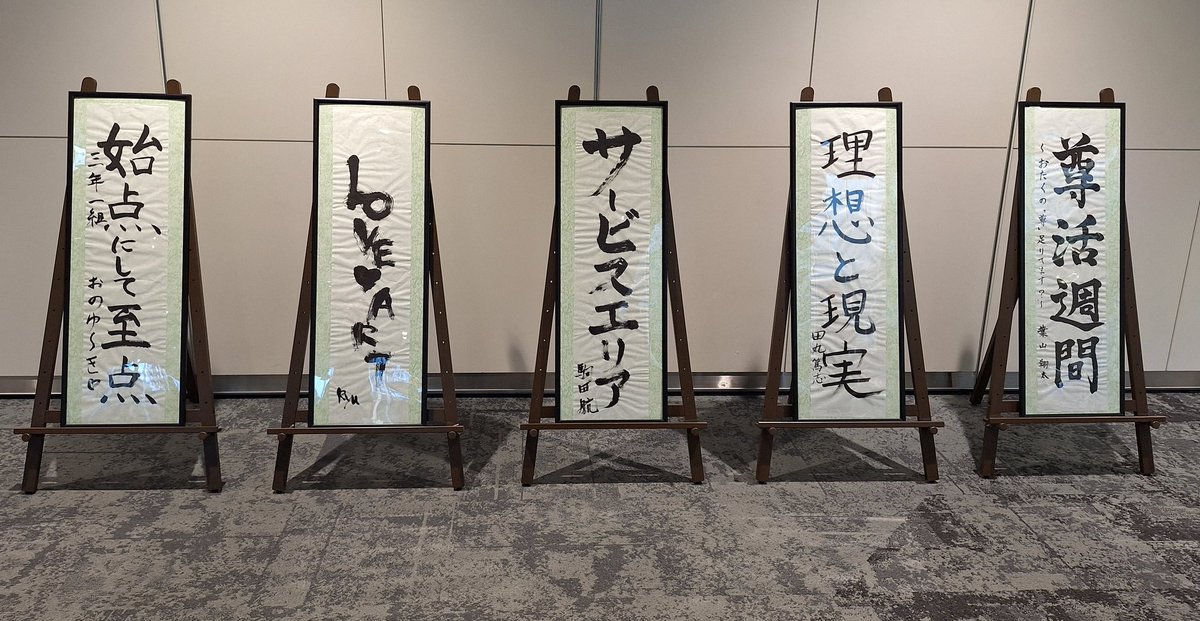 始点にして至点
三年一組 おのゆ〜き
LOVE♥ART
Ryu
サービスエリア
駒田航
理想と現実
田丸篤志
尊活週間
〜おたくの"尊"足りてますか〜
葉山翔太